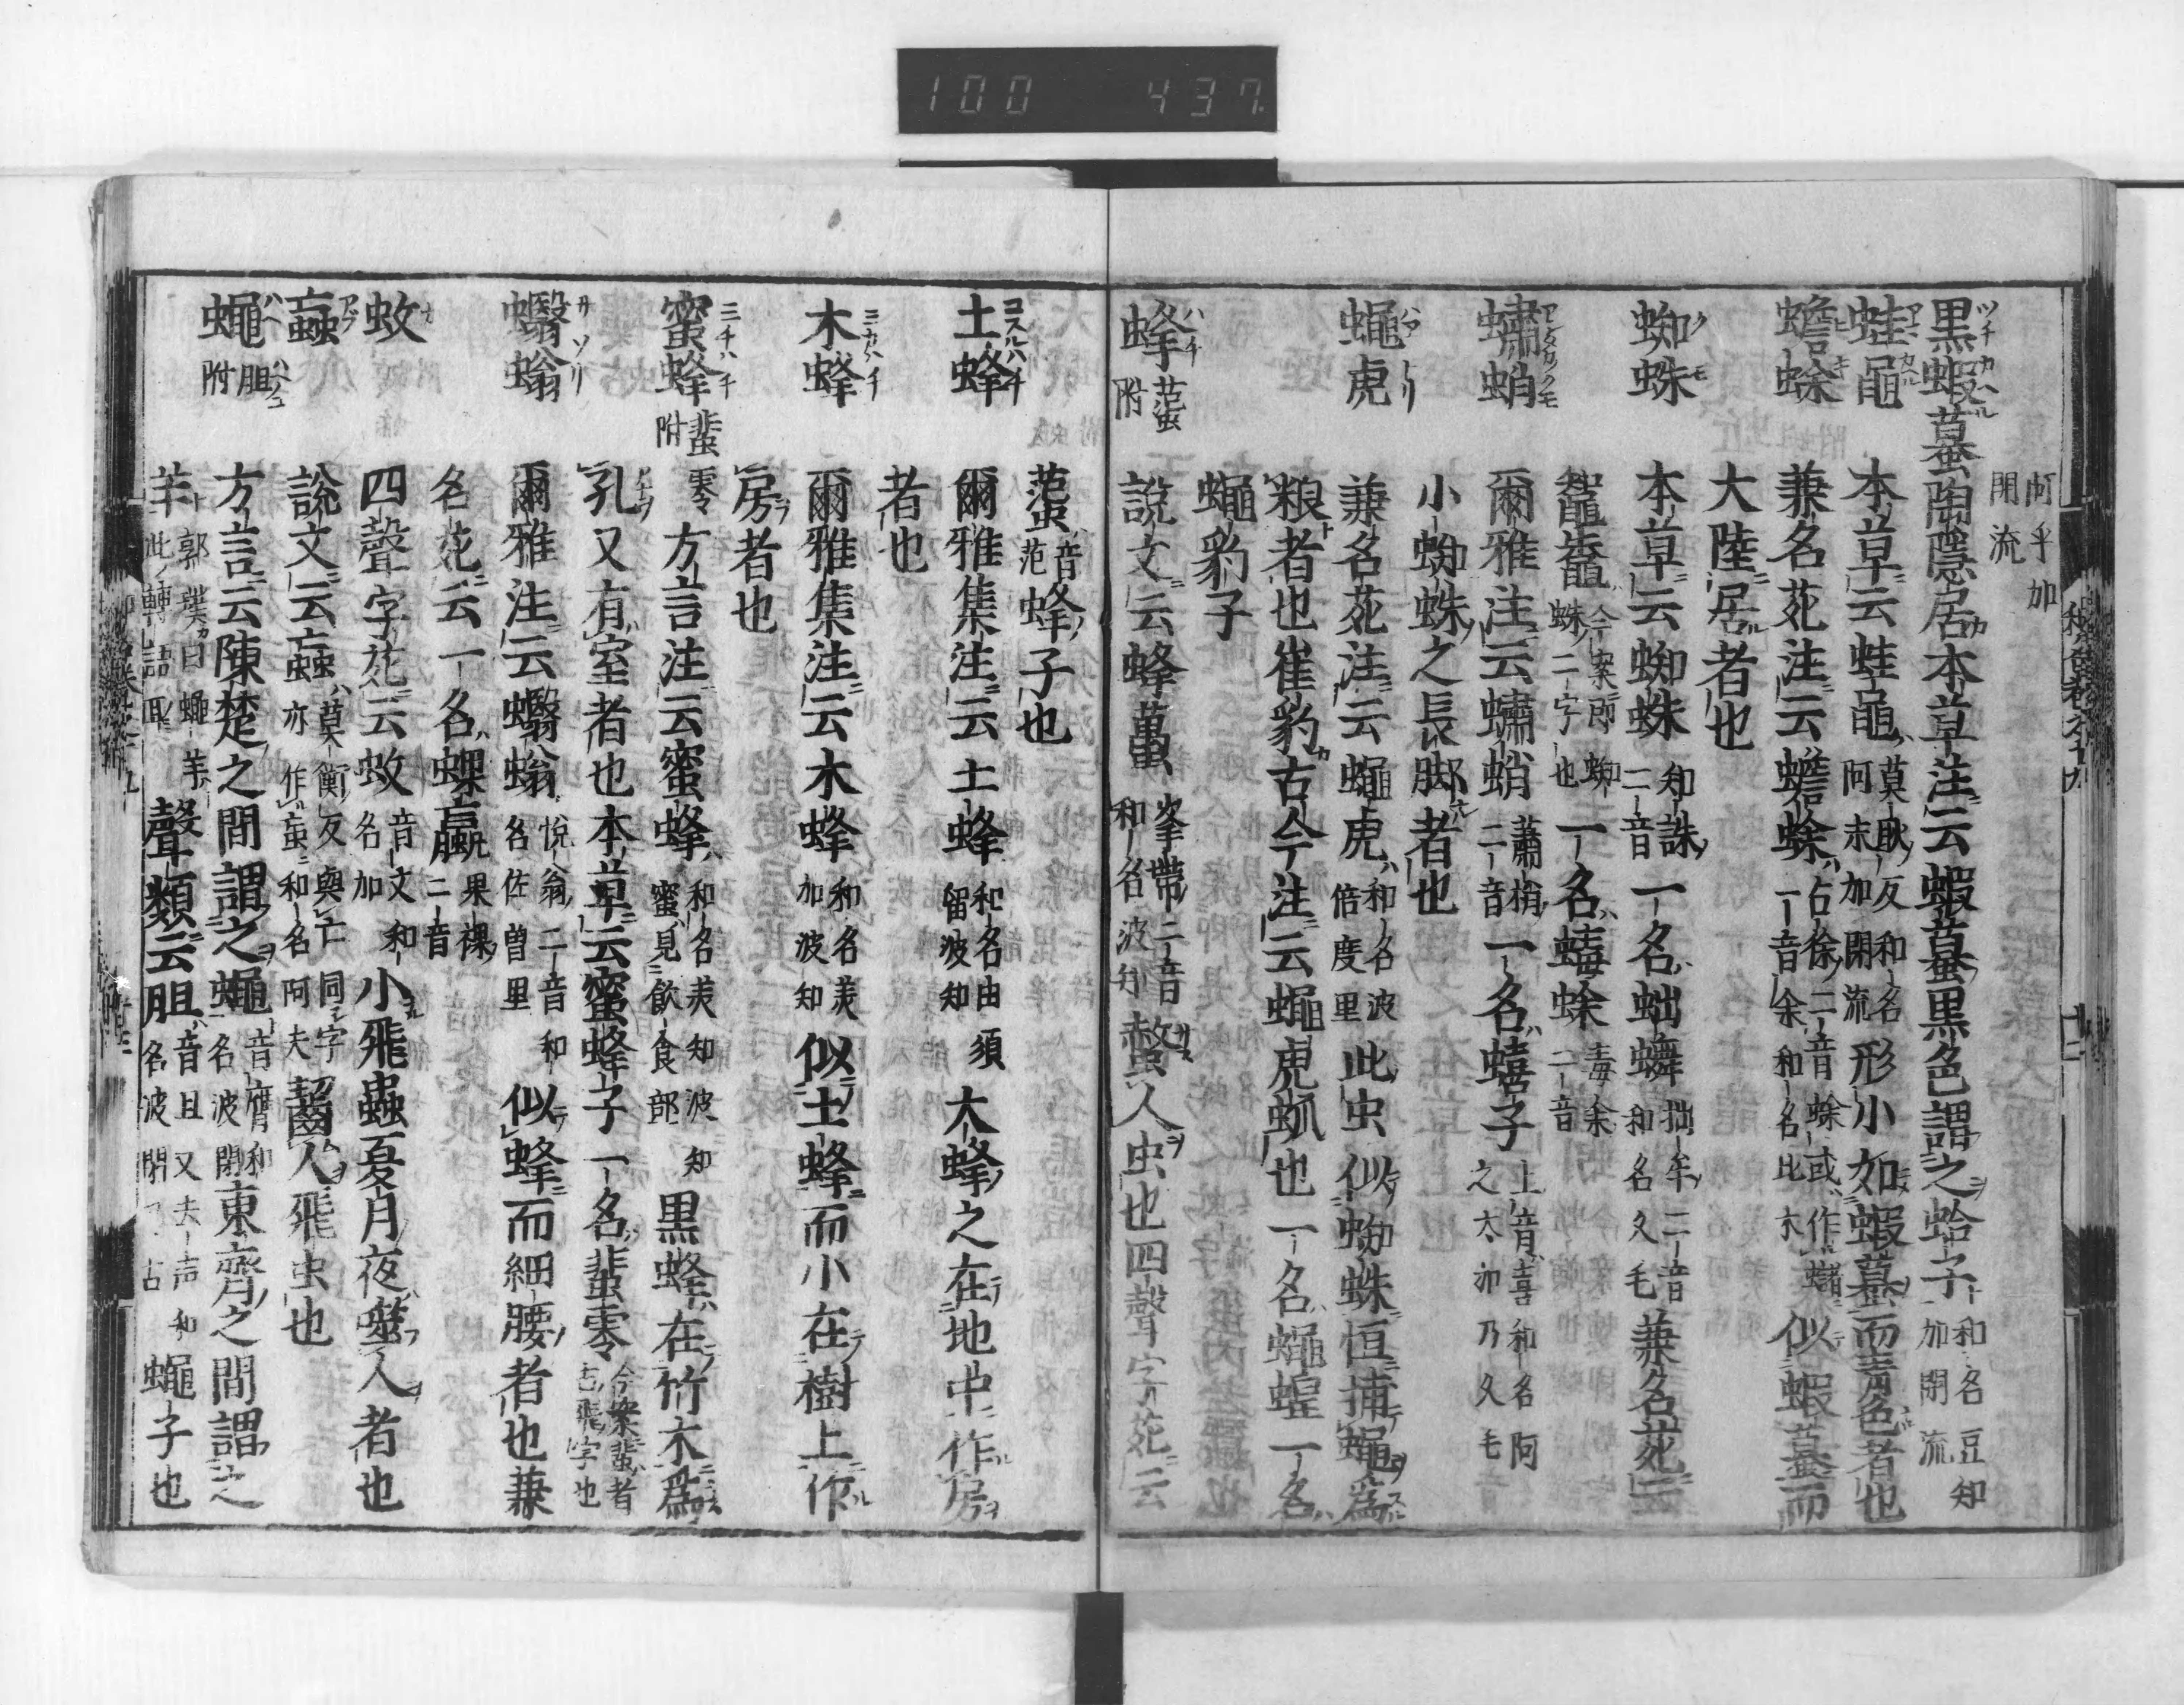 100 437
阿乎加閇流
黒蝦蟇 陶隱居本草注云蝦蟇黒色謂之蛤子 和名豆知加閇流
ツチカヘル
蛙黽 本草云蛙黽 莫耿反和名阿末加閇流 形小如蝦蟇而青色者也
アマカヘル
蟾蜍 兼名苑注云蟾蜍 占徐二音蜍或作蠩一音余和名比木 似蝦蟇而
ヒキ
大陸居者也
蜘蛛 本草云蜘蛛 知誅二音 一名蝃蟱 拙牟二音和名久毛 兼名苑云
クモ
鼅鼄 今案即蜘蛛二字也 一名蝳蜍 毒余二音
蠨蛸 爾雅注云蠨蛸 蕭梢二音 一名蟢子 上音喜和名阿之太加乃久毛
アシタカクモ
小蜘蛛之長脚者也
蠅虎 兼名苑注云蠅虎 和名波倍度里 此虫似蜘蛛恒捕蠅為
ハヘトリ
粮者也崔豹古今注云蠅虎蚖也一名蠅蝗一名
蠅豹子
蜂 蠆附 說文云蜂蠆 峯帶二音和名波知 螫人虫也四聲字苑云
ハチ
䗬 音范 蜂子也
土蜂 爾雅集注云土蜂 和名由須留波知 大蜂之在地中作房
コスルハチ
者也
木蜂 爾雅集注云木蜂 和名美加波知 似土蜂而小在樹上作
ミカハチ
房者也
蜜蜂 蜚零附 方言注云蜜蜂 和名美知波知蜜見飲食部 黒蜂在竹木為
ミチハチ
孔又有室者也本草云蜜蜂子一名蜚零 今案蜚者古飛字也
蠮螉 爾雅注云蠮螉 悅翁二音和名佐曽里 似蜂而細腰者也兼
サソリ
名苑云一名蜾蠃 果裸二音
蚊 四聲字苑云蚊 音文和名加 小飛蟲夏月夜噬人者也
カ
䖟 說文云䖟 莫衡反與亡同字亦作蝱和名阿夫 齧人飛虫也
アブ
蠅 胆附 方言云陳楚之間謂之蠅 音膺和名波閇 東齊之間謂之
ハヘ ハヘノコ
羊 郭璞曰蠅羊此轉語耳 聲類云胆 音且又去声和名波閇乃古 蠅子也